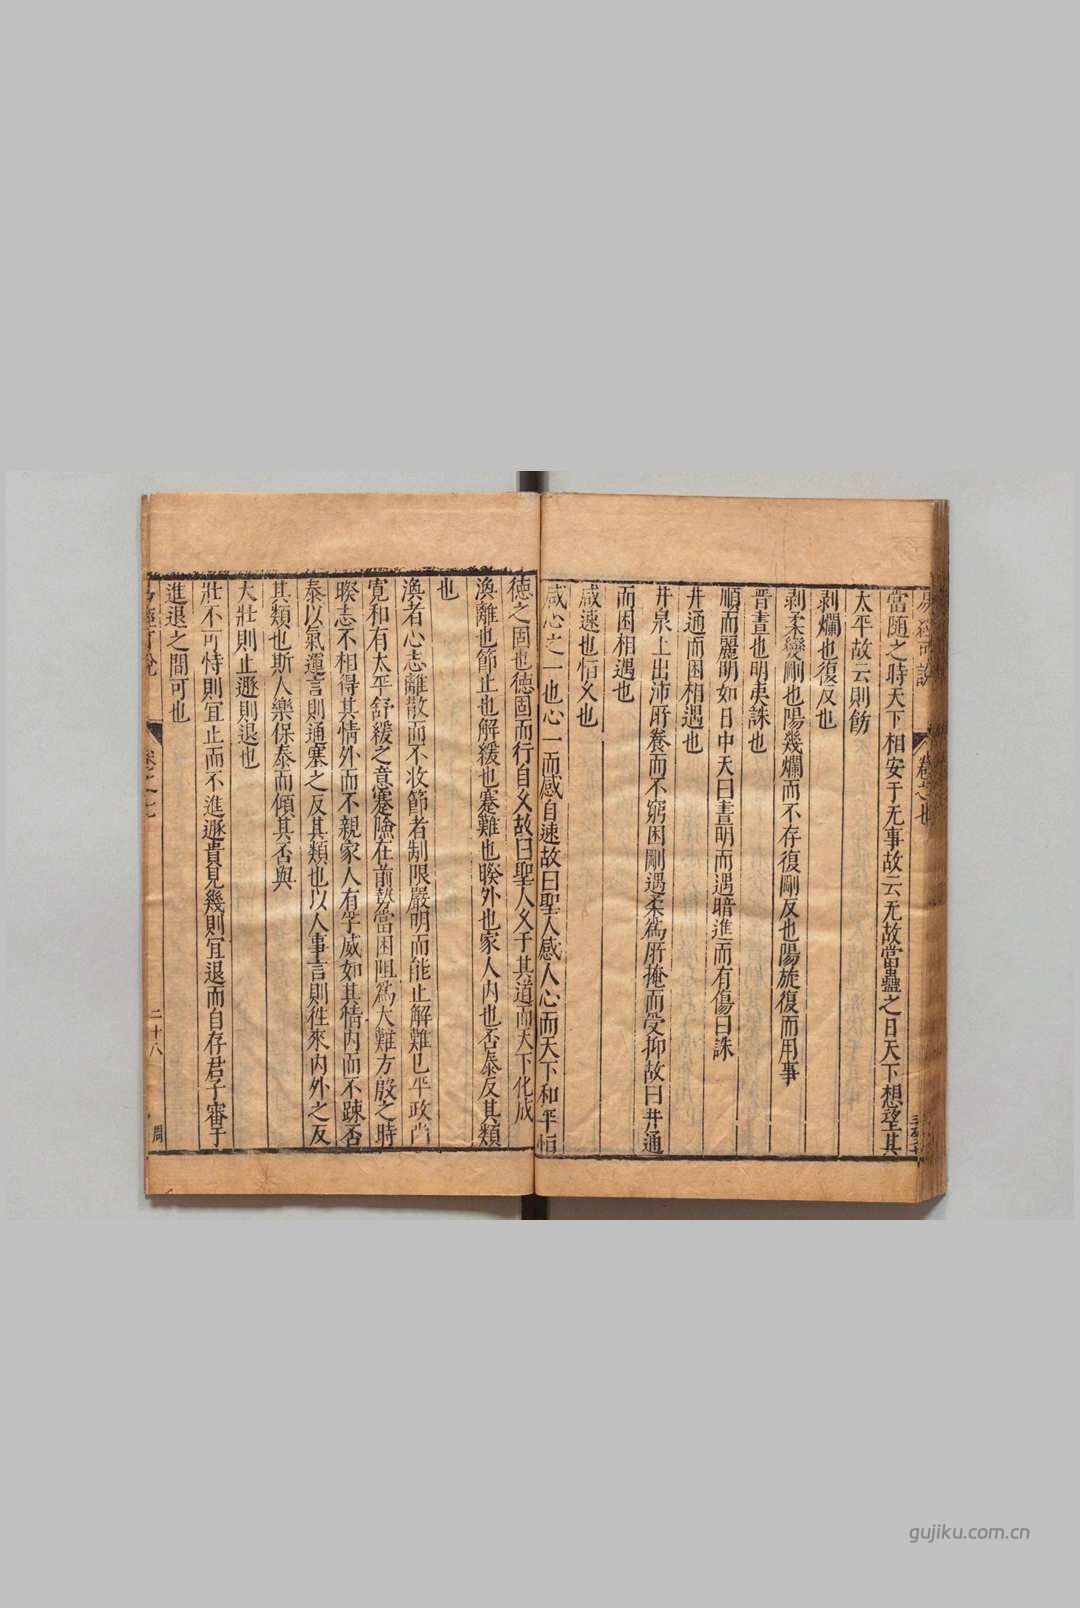 易經可說
卷之七
當隨之時天下相安于无事故云无故當蠱之日天下想望其
太平故云則飭
剥爛也復反也
剥柔變剛也陽幾爛而不存復剛反也陽旋復而用事
晋晝也明夷誅也
順而麗明如日中天曰晝明而遇暗進而有傷曰誅
井通而困相遇也
井泉上出沛所養而不窮困剛遇柔為所掩而受抑故曰井通
而困相遇也
咸速也恒久也
咸心之一也心一而感自速故曰聖人感人心而天下和平恒
德之固也德固而行自久故曰聖人久于其道而天下化成
渙離也節止也解緩也蹇難也睽外也家人内也否泰反其類
也
渙者心志離散而不收節者制限嚴明而能止解難已平政尚
寛和有太平舒緩之意蹇險在前勢當困阻為大難方殷之時
睽志不相得其情外而不親家人有孚威如其情内而不踈否
泰以氣運言則通塞之反其類也以人事言則徃來内外之反
其類也斯人樂保泰而傾其否與
大壯則止遯則退也
壯不可恃則宜止而不進遯貴見幾則宜退而自存君子審于
進退之間可也
易經可說
卷之七
二十八
周
gujiku.com.cn